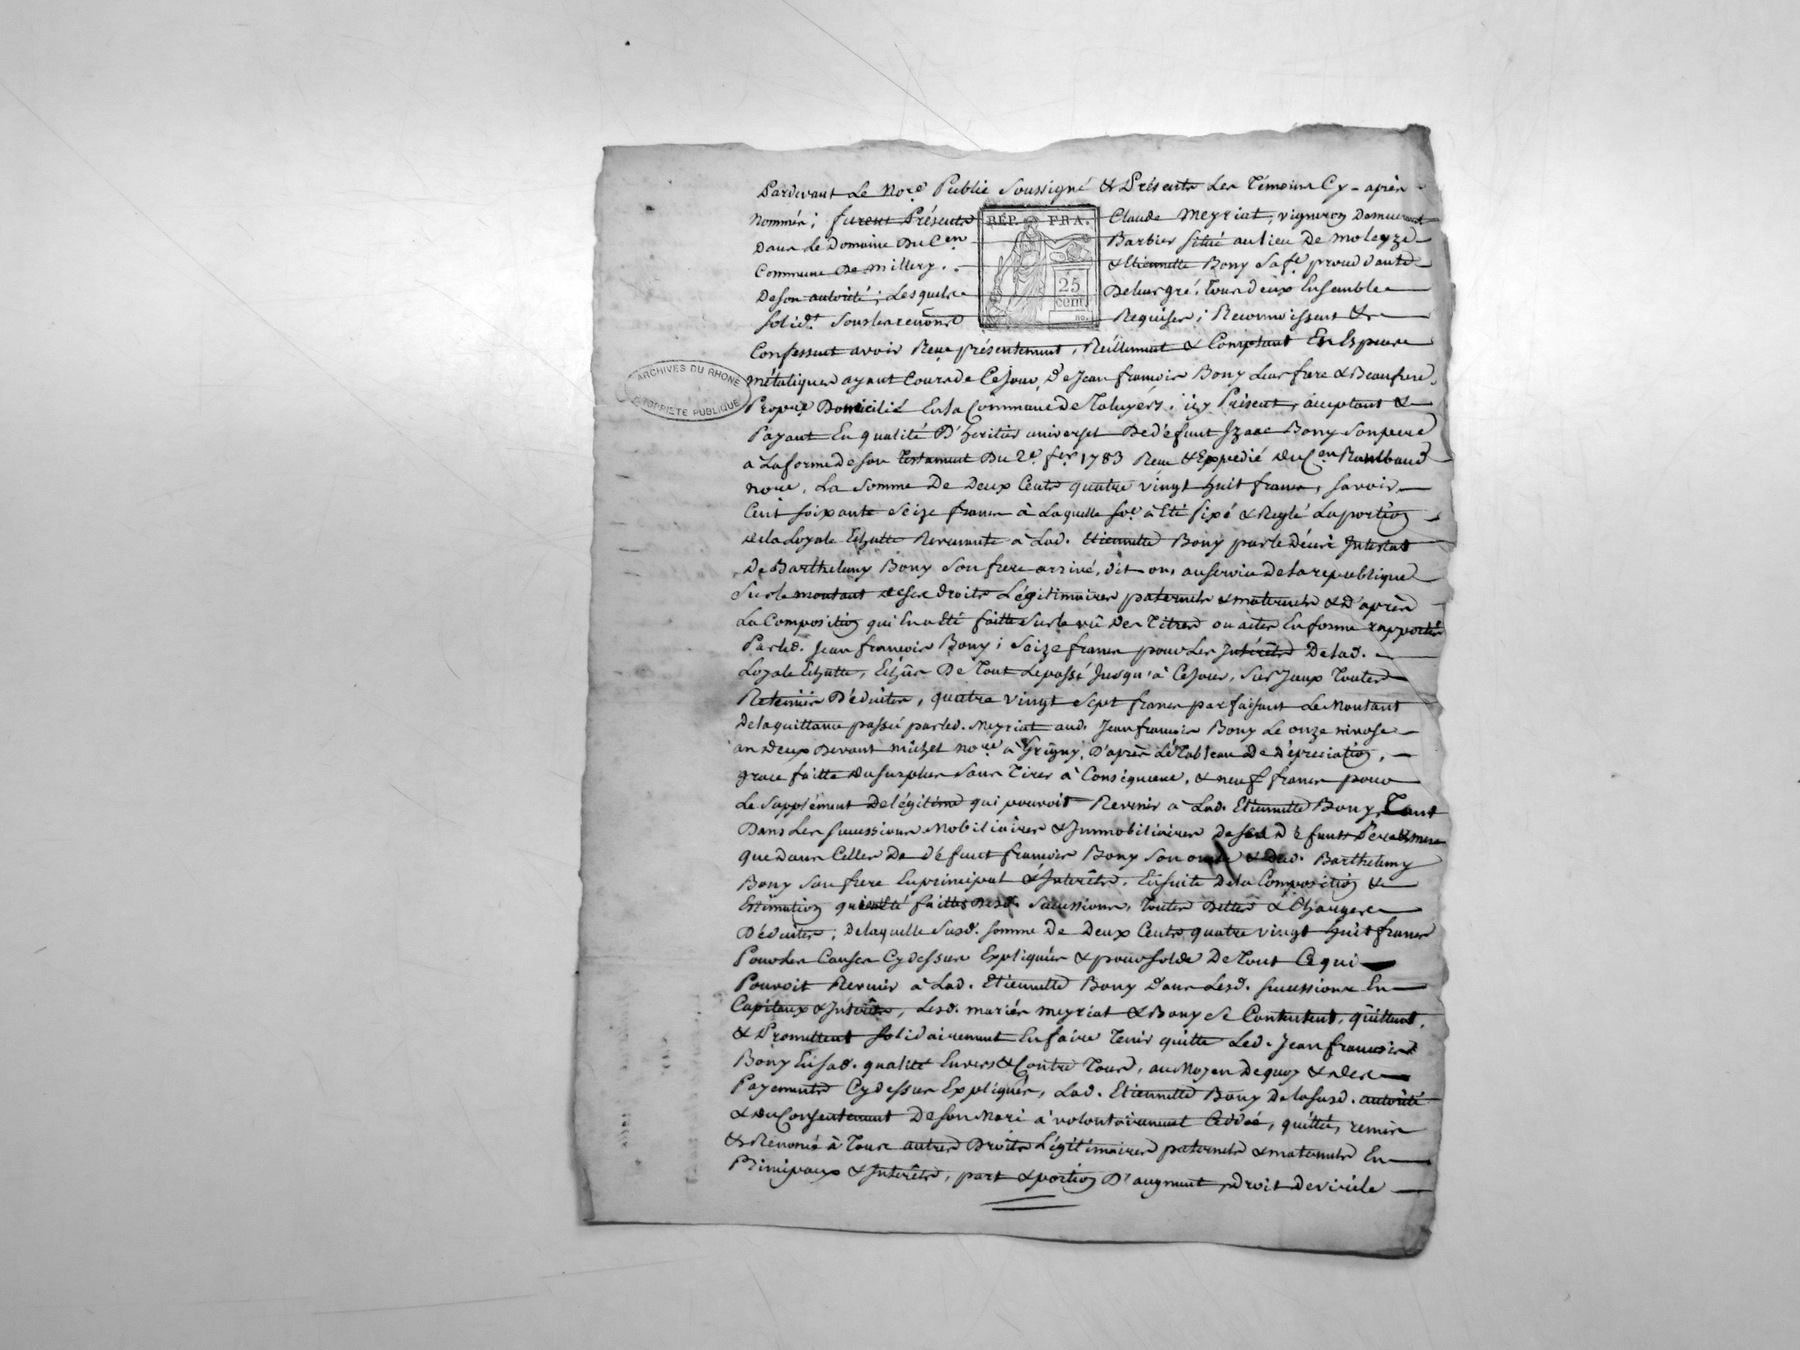 Pardevant Le No.re Public Soussigné & Présents Les Témoins Cy-après
Nommés; furent Présents Claude Meyriat, vigneron Demeurant
Dans Le Domaine Du C.en Barbier situé au lieu De moleyze
Commune De millery. & Etiennette Bony Sa f.e proud'autd
De son autorité; Lesquels De leur gré, Tous deux Ensemble
solid.t sous les renon.s Requises; Reconnoissent &
RÉP. FRA.
25
cent.
Confessent avoir Reçu présentement, Réellement & Comptant En Especes
métaliques ayant Cours de Ce Jour, De Jean françois Bony Leur frere & Beaufrere,
Prop.re Domicilié En la Commune de Taluyers, icy Présent, acceptant &
Payant En qualité D'heritier universel De défunt Izaac Bony Son pere
a La forme de son Testament Du 2.e fer 1783 Reçu & Expedié du C.en Rambaud
no.re, La Somme De Deux Cents quatre vingt huit francs, savoir,
Cent soixante Seize francs à Laquelle so.e a Eté fixé & Reglé La portion
de la Loyale Echutte Revenante à Lad. Etiennette Bony par le Décès Intestat
De Barthelemy Bony Son frere arrivé, dit-on, au service De la republique
Sur le montant de ses droits Légitimaires paternels & maternels & D'après
La Composition qui En a Eté faitte sur le vû Des Titres ou actes En forme rapportés
Par led. Jean françois Bony; Seize francs pour Les Intérêts De lad.
Loyale Echutte, Echûs De Tout Le passé Jusqu'à Ce Jour, Sur Iceux Toutes
Retenües Déduites, quatre vingt Sept francs parfaisant Le Montant
De la quittance passée par led. Meyriat aud. Jean françois Bony Le onze nivose
an Deux Devant michel no.re à Grigny, D'après Le Tableau De Dépreciation,
grace faitte du surplus Sans Tirer à Conséquence, & neuf francs pour
Le Supplément De légitime qui pouvoit Revenir à Lad. Etiennette Bony, Tant
Dans Les successions Mobiliaires & Immobiliaires De ses Défunts Pere & mere
que dans Celles De défunt françois Bony Son oncle & Dud. Barthelemy
Bony Son frere En principal & Intérêts, En suite De la Composition &
Estimation qui a Eté faitte Desd. Successions, Toutes Dettes & Charges
Déduites; De laquelle Susd. somme De Deux Cents quatre vingt huit francs
Pour Les Causes Cy dessus Expliquées & pour solde De Tout Ce qui
Pouvoit Revenir à Lad. Etiennette Bony Dans Lesd. successions En
Capitaux & Intérêts, Lesd. mariés Meyriat & Bony Se Contentent, quittent,
& Promettent solidairement En faire Tenir quitte Led. Jean françois
Bony En sad. qualité Envers & Contre Tous, au Moyen De quoy & Des
Payements Cy dessus Expliqués, Lad. Etiennette Bony De la susd. autorité
& du Consentement De son Mari a volontairement Cédée, quittée, remis
& Renoncé à Tous autres Droits Légitimaires paternels & maternels En
Principaux & Intérêts, part & portion D'augment, Droit De virile
ARCHIVES DU RHONE
PUBLIQUE